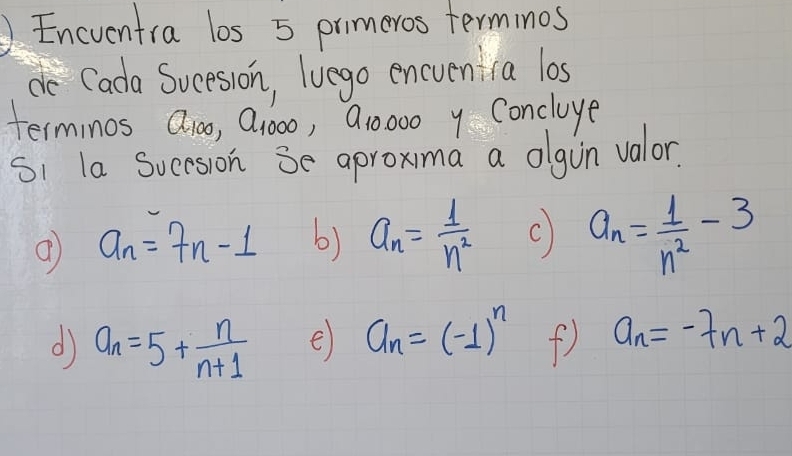 ) Encuentra los 5 primeros terminos
de cada Sucesión, luego encuentra los
terminos a₁₀₀, a₁₀₀₀, a₁₀.₀₀₀ y Concluye
Si la Sucesión Se aproxima a algún valor.
a) aₙ = 7n - 1 b) aₙ = 1/n² c) aₙ = 1/n² - 3
d) aₙ = 5 + n/(n+1) e) aₙ = (-1)ⁿ f) aₙ = -7n + 2